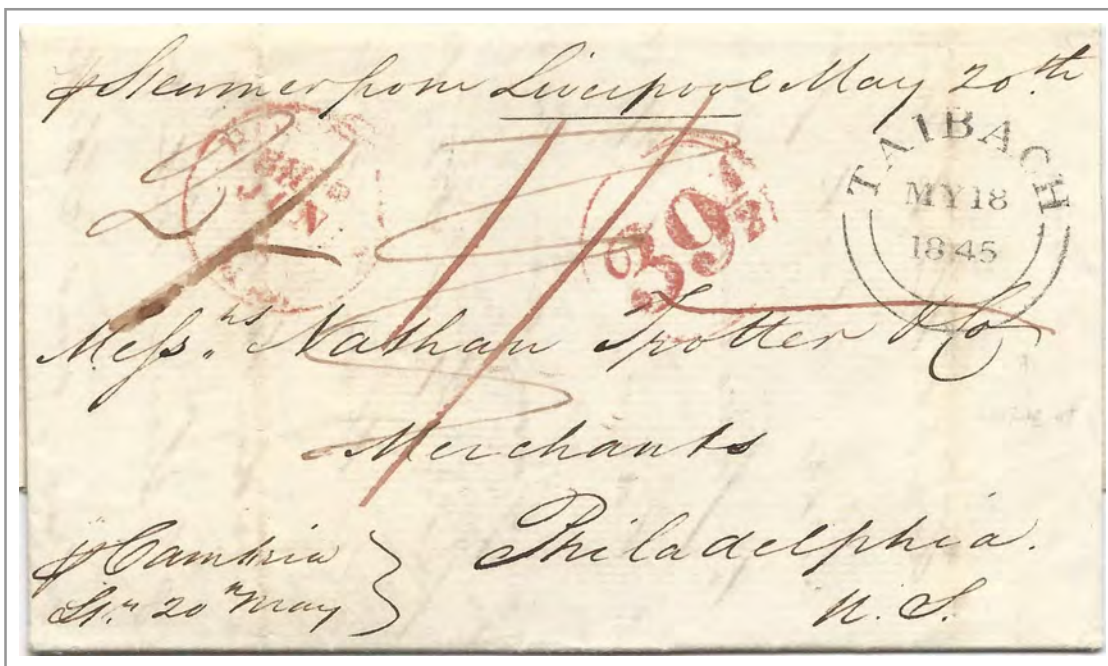 p Steamer from Liverpool May 20th
TAIBACH
MY 18
1845
SHIP
JUN
39½
Messrs Nathan Trotter & Co
Merchants
Philadelphia.
U. S.
p Cambria
Str 20th May